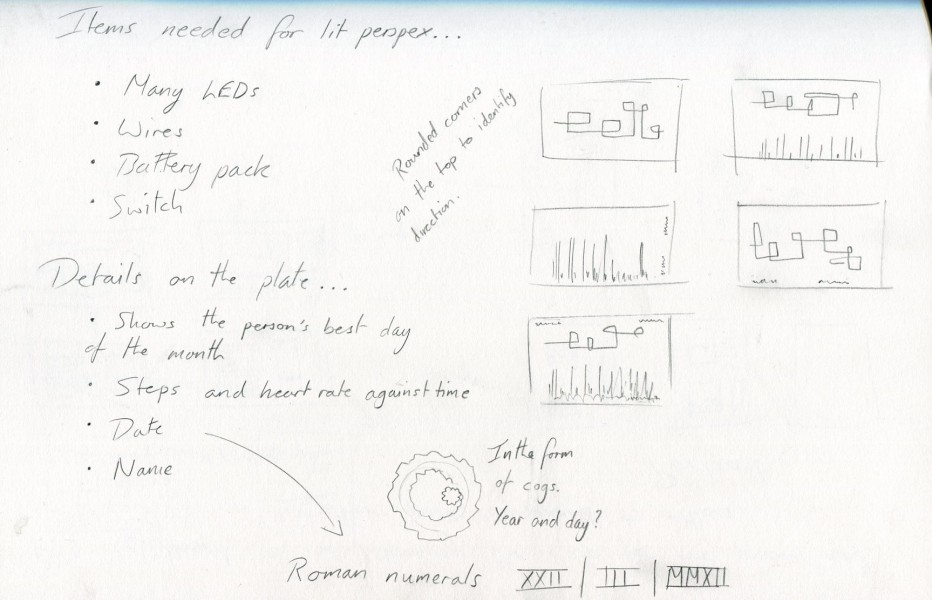 Items needed for lit perspex...
• Many LEDs
• Wires
• Battery pack
• Switch
Rounded corners
on the top to identify
direction.
Details on the plate...
• Shows the person's best day
of the month
• Steps and heart rate against time
• Date
• Name
In the form
of cogs.
Year and day?
Roman numerals XXII | III | MMXII